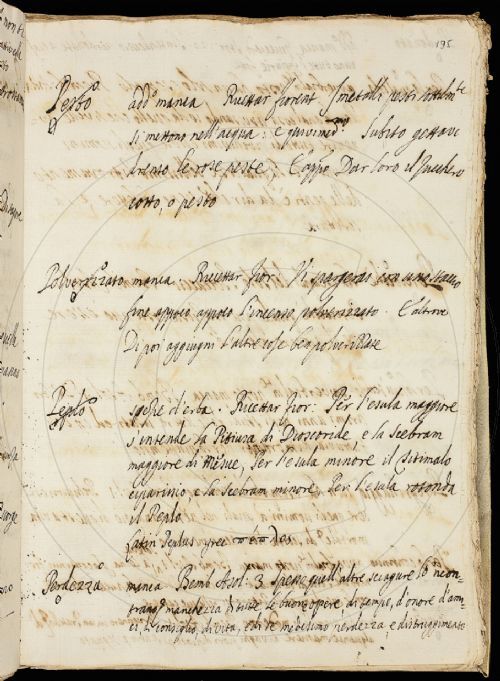 195
Pesto add.o mania Ricettar fiorent I metalli pesti sottilm.te
si mettono nell'acqua: e quivi Subito gettavi
drento le rose peste; Dar loro il Zucchero
cotto, o pesto
Polverizzato mania. Ricettar fior: Vi spargerai con uno staccio
fine appoco appoco l'incenso polverizzato. E altrove
Di poi aggiugni l'altre cose ben polverizzate
Peplo spezie d'erba. Ricettar fior: Per l'esula maggiore
s'intende la Pitiusa di Dioscoride, e la Scebram
maggiore di Mesue, Per l'esula minore il titimalo
ciparissio, e la Scebram minore, Per l'esula rotonda
il Peplo
Latin Peplus grec πεπλος
Perdezza mania Bemb Asol. 3 Spesse quell'altre sciagure s'incon-
trano manchezza di tutte le buone opere, di tempo, d'onore d'ami-
ci, di consiglio, di vita, e di se medesimo perdezza, e distruggimento